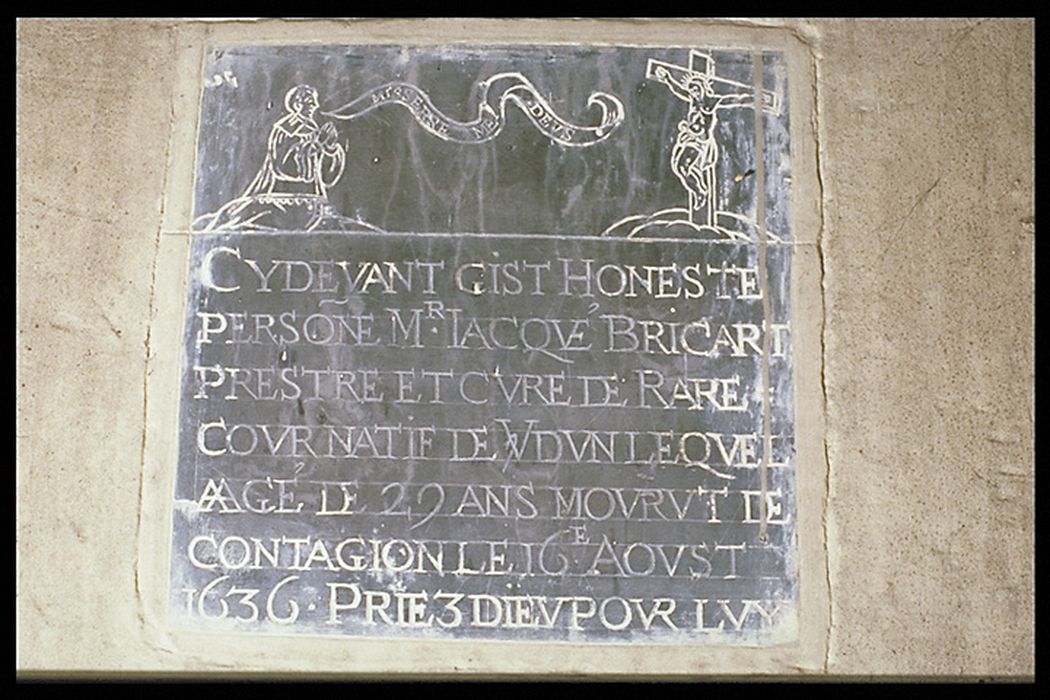 NE DEVS
CY DEVANT GIST HONESTE
PERSOÑE M^R. IACQVÉ BRICART
PRESTRE ET CVRE DE RARE =
COVR NATIF DE VVDVN LEQVEL
AAGÉ DE 29 ANS MOVRVT DE
CONTAGION LE 16^E AOVST
1636 · PRIE3 DIEV POVR LVY